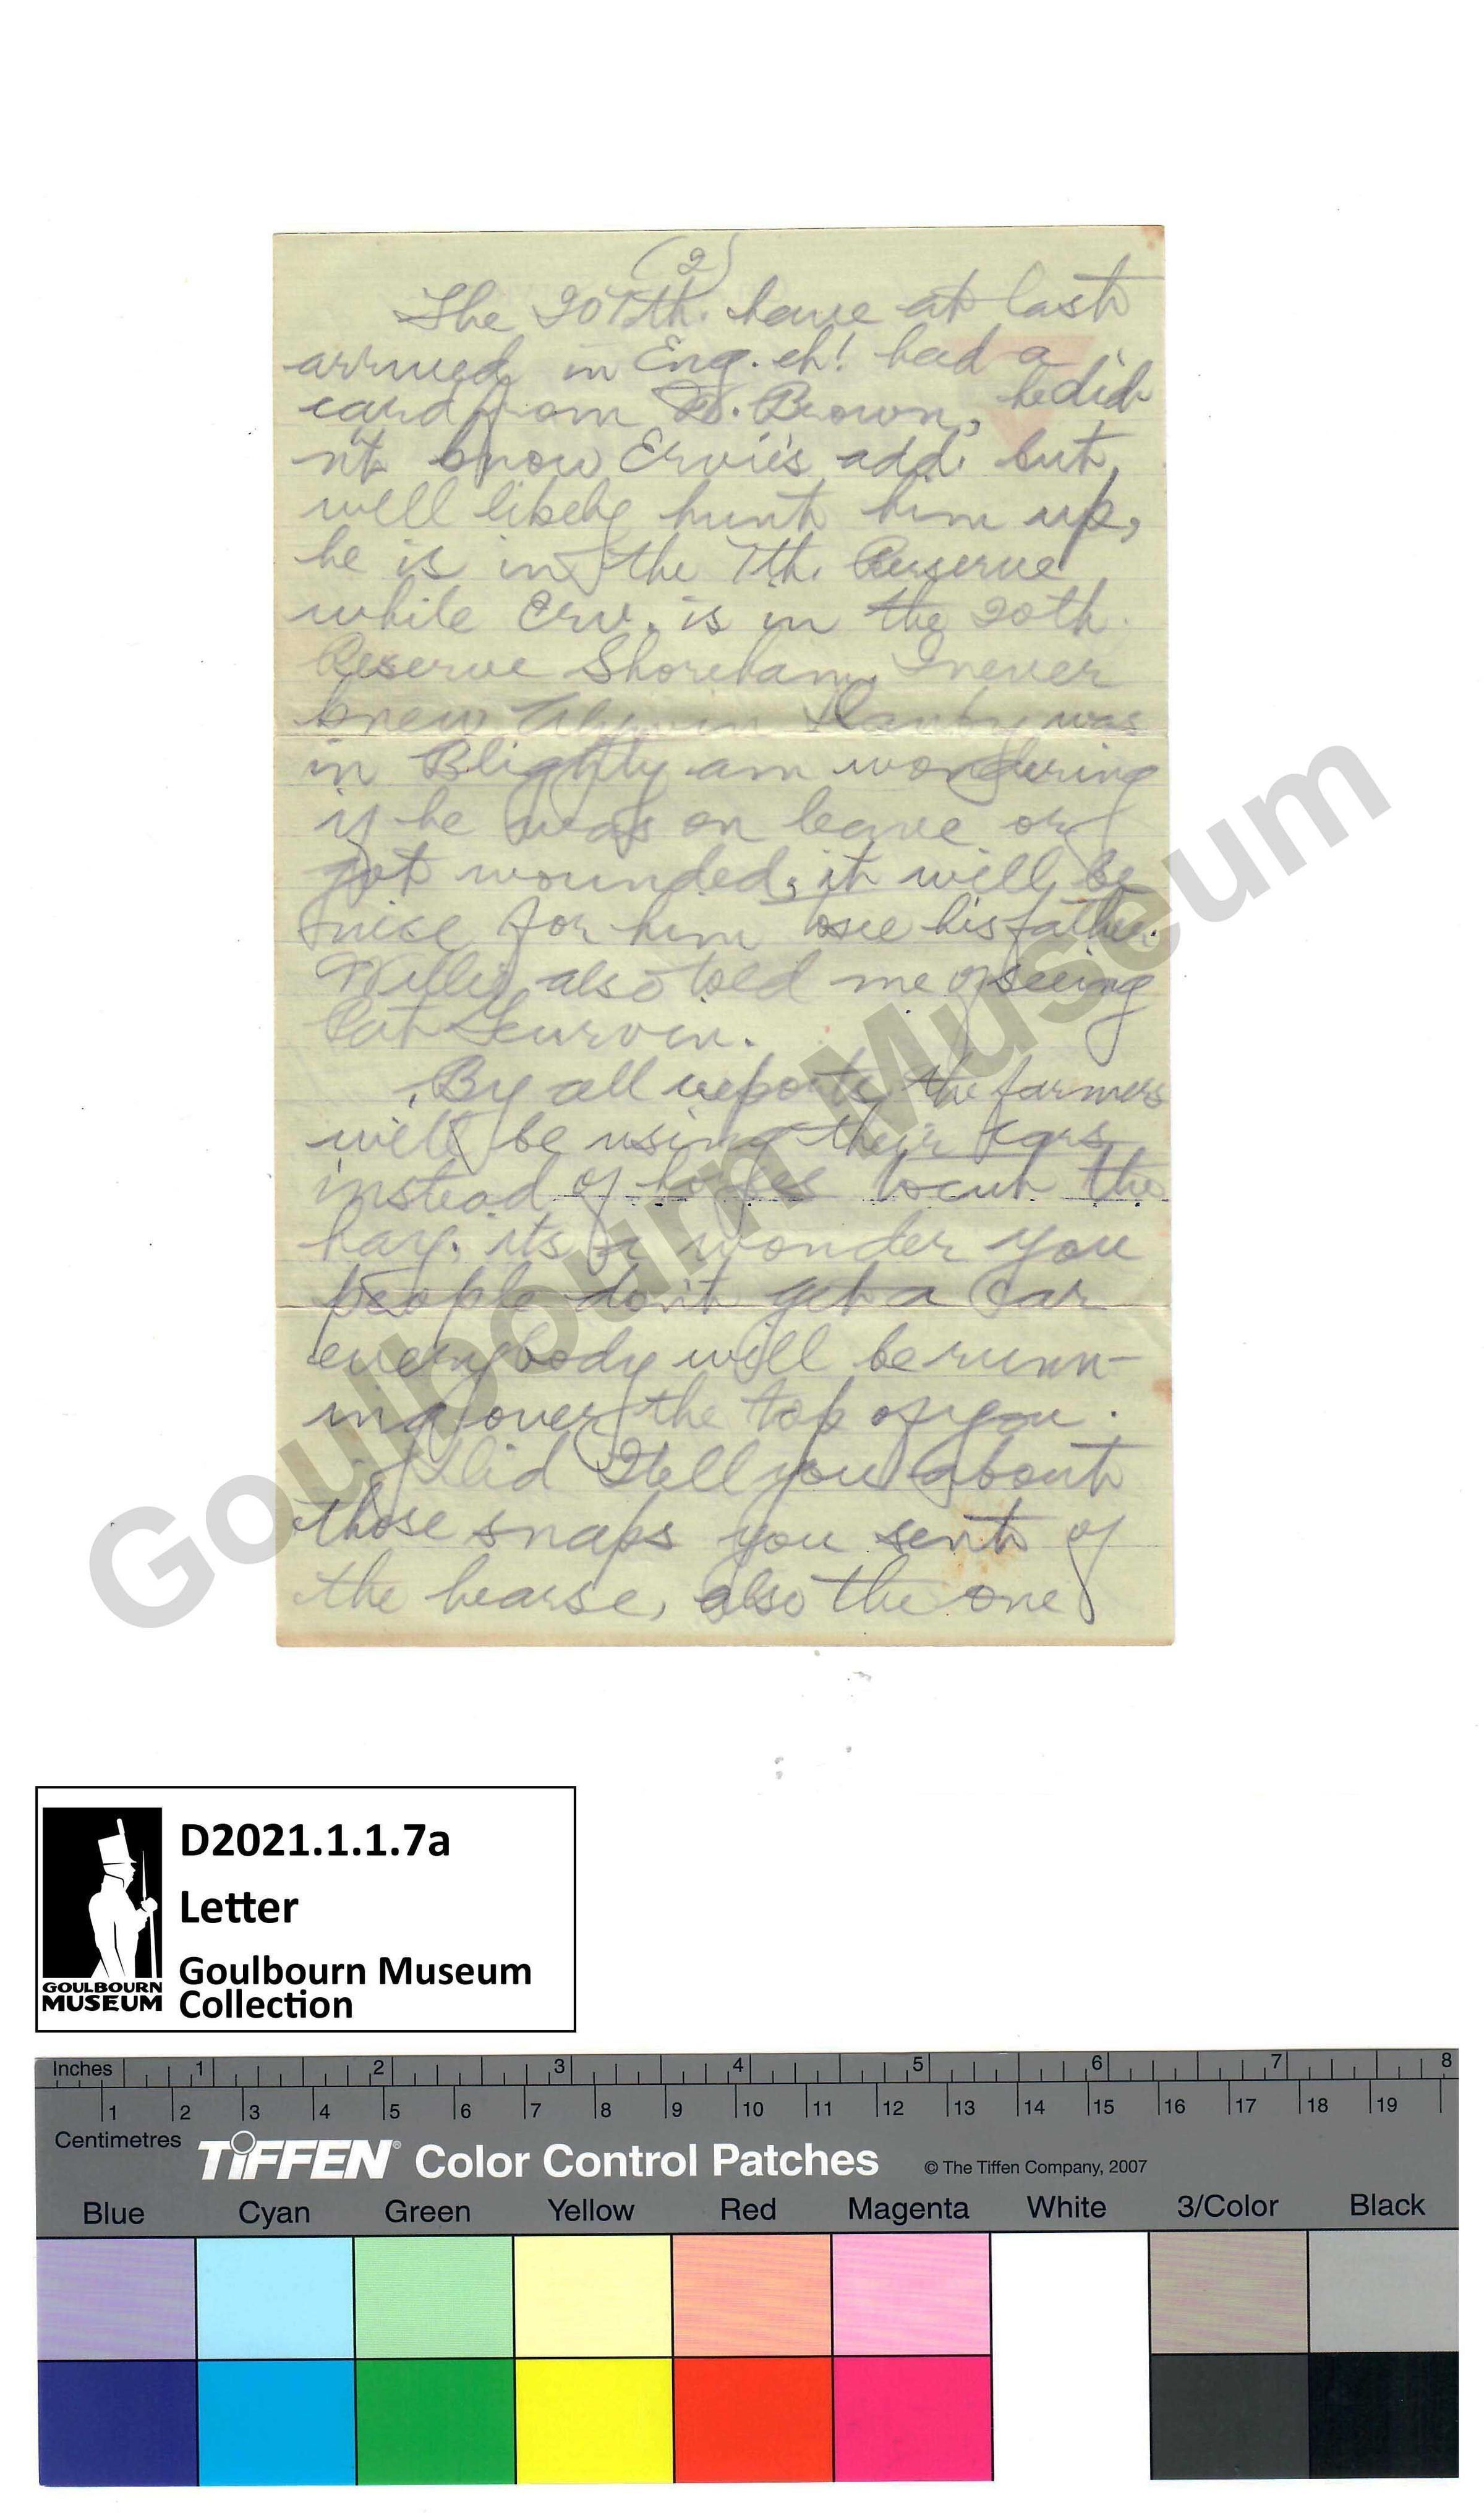 (2)
The 207th. have at last
arrived in Eng. eh! had a
card from W. Brown, he did
n't know Ervie's add. but
will likely hunt him up,
he is in the 7th. Reserve
while Erv. is in the 20th.
Reserve Shoreham. I never
knew was
in Blighty am wondering
if he was on leave or
got wounded, it will be
nice for him to see his father.
Willie also told me of seeing
Pat
By all reports the farmers
will be using their cars
instead of horses to cut the
hay. its a wonder you
people don't get a car
everybody will be runn-
ing over the top of you.
Did I tell you about
those snaps you sent of
the hearse, also the one
Goulbourn Museum
D2021.1.1.7a
Letter
Goulbourn Museum
Collection
GOULBOURN
MUSEUM
Inches 1 2 3 4 5 6 7 8
1 2 3 4 5 6 7 8 9 10 11 12 13 14 15 16 17 18 19
Centimetres
TIFFEN® Color Control Patches © The Tiffen Company, 2007
Blue Cyan Green Yellow Red Magenta White 3/Color Black